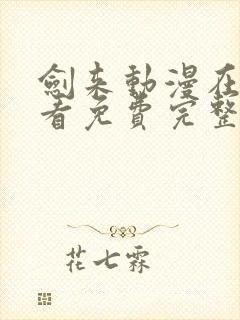 劍来動漫在
看免費完整
花七霖